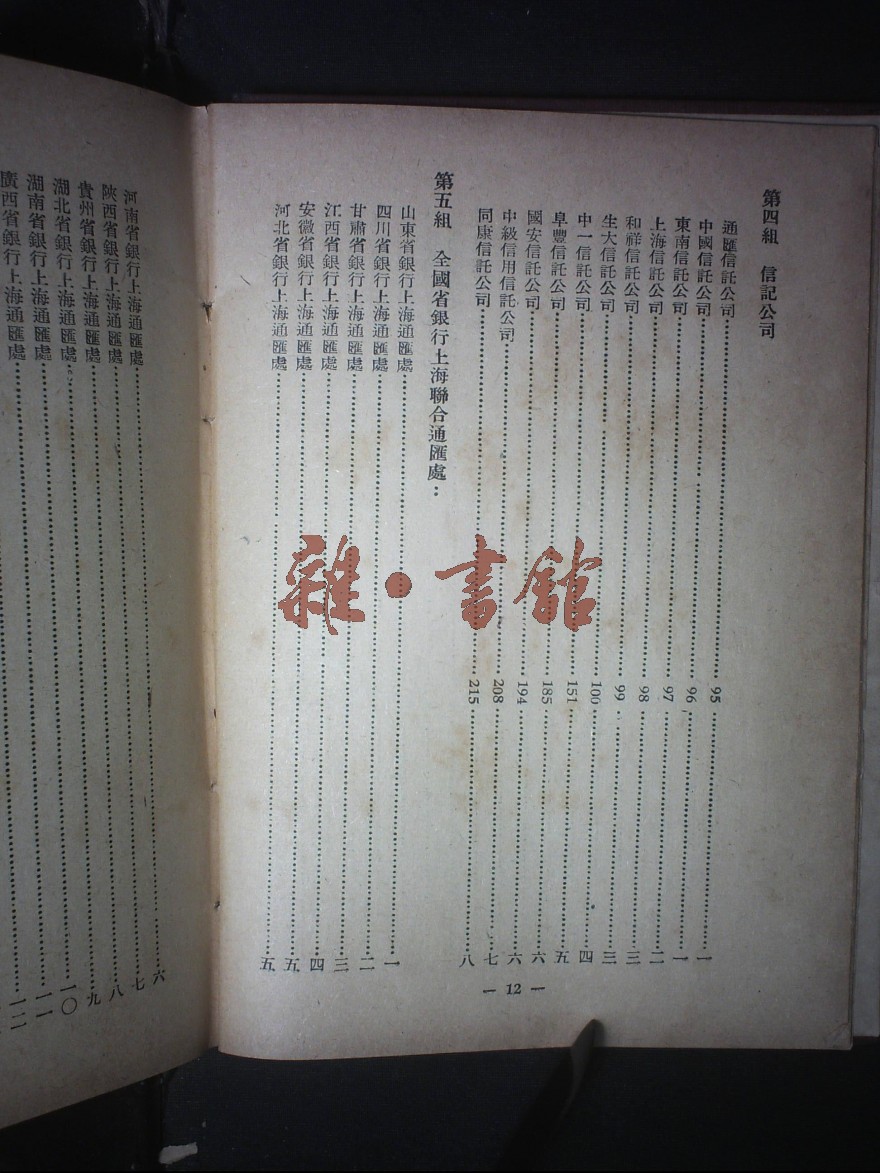 第四組　信記公司
通匯信託公司……95……一
中國信託公司……96……一
東南信託公司……97……二
上海信託公司……98……三
和祥信託公司……99……三
生大信託公司……100……四
中一信託公司……151……五
阜豐信託公司……185……六
國安信託公司……194……六
中級信用信託公司……208……七
同康信託公司……215……八
第五組　全國省銀行上海聯合通匯處：
山東省銀行上海通匯處……一
四川省銀行上海通匯處……二
甘肅省銀行上海通匯處……三
江西省銀行上海通匯處……四
安徽省銀行上海通匯處……五
河北省銀行上海通匯處……五
— 12 —
河南省銀行上海通匯處……六
陝西省銀行上海通匯處……七
貴州省銀行上海通匯處……八
湖北省銀行上海通匯處……九
湖南省銀行上海通匯處……一〇
廣西省銀行上海通匯處……一一
一二
雜·書館